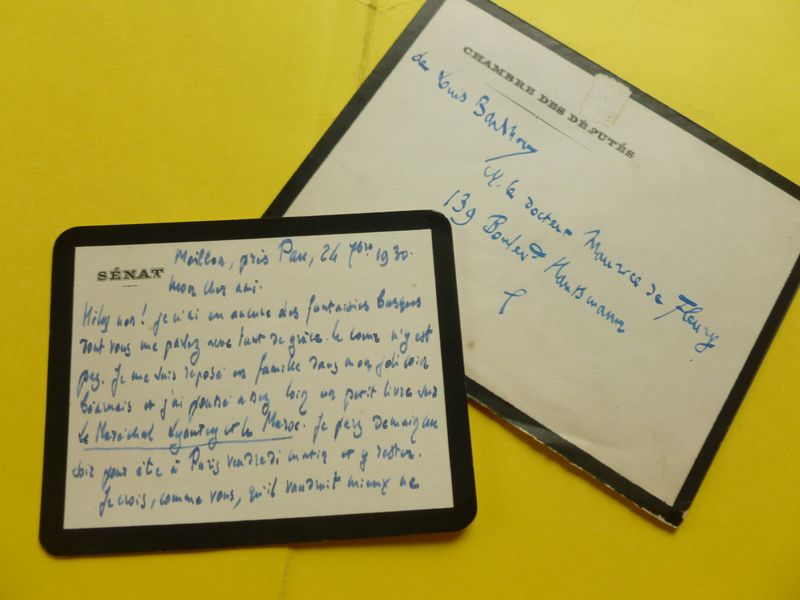 CHAMBRE DES DÉPUTÉS
de Louis Barthou
M. le docteur Maurice de Fleury
139 Boulevd Haussmann
SÉNAT
Meillon, près Pau, 24 7bre 1930.
Mon cher ami.
Hélas non! je n'ai eu aucune des fantaisies basques
dont vous me parlez avec tant de grâce. Le cœur n'y est
pas. Je me suis reposé en famille dans mon joli coin
béarnais et j'ai poussé assez loin un petit livre sur
le Maréchal Lyautey et le Maroc. Je pars demain
soir pour être à Paris vendredi matin et y rester.
Je crois, comme vous, qu'il vaudrait mieux ne